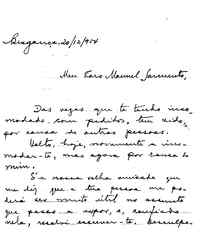 Bragança, 20/12/954
Meu Caro Manuel Sarmento,
Das vezes que te tenho inco-
modado com pedidos, tem sido,
por causa de outras pessoas.
Volto, hoje, novamente a inco-
modar-te, mas agora por causa de
mim.
S'a nossa velha amizade que
me diz que a tua pessoa me po-
derá ser muito útil no assunto
que passo a expor, e, confiado
nela, resolvi escrever-te. Desculpa.